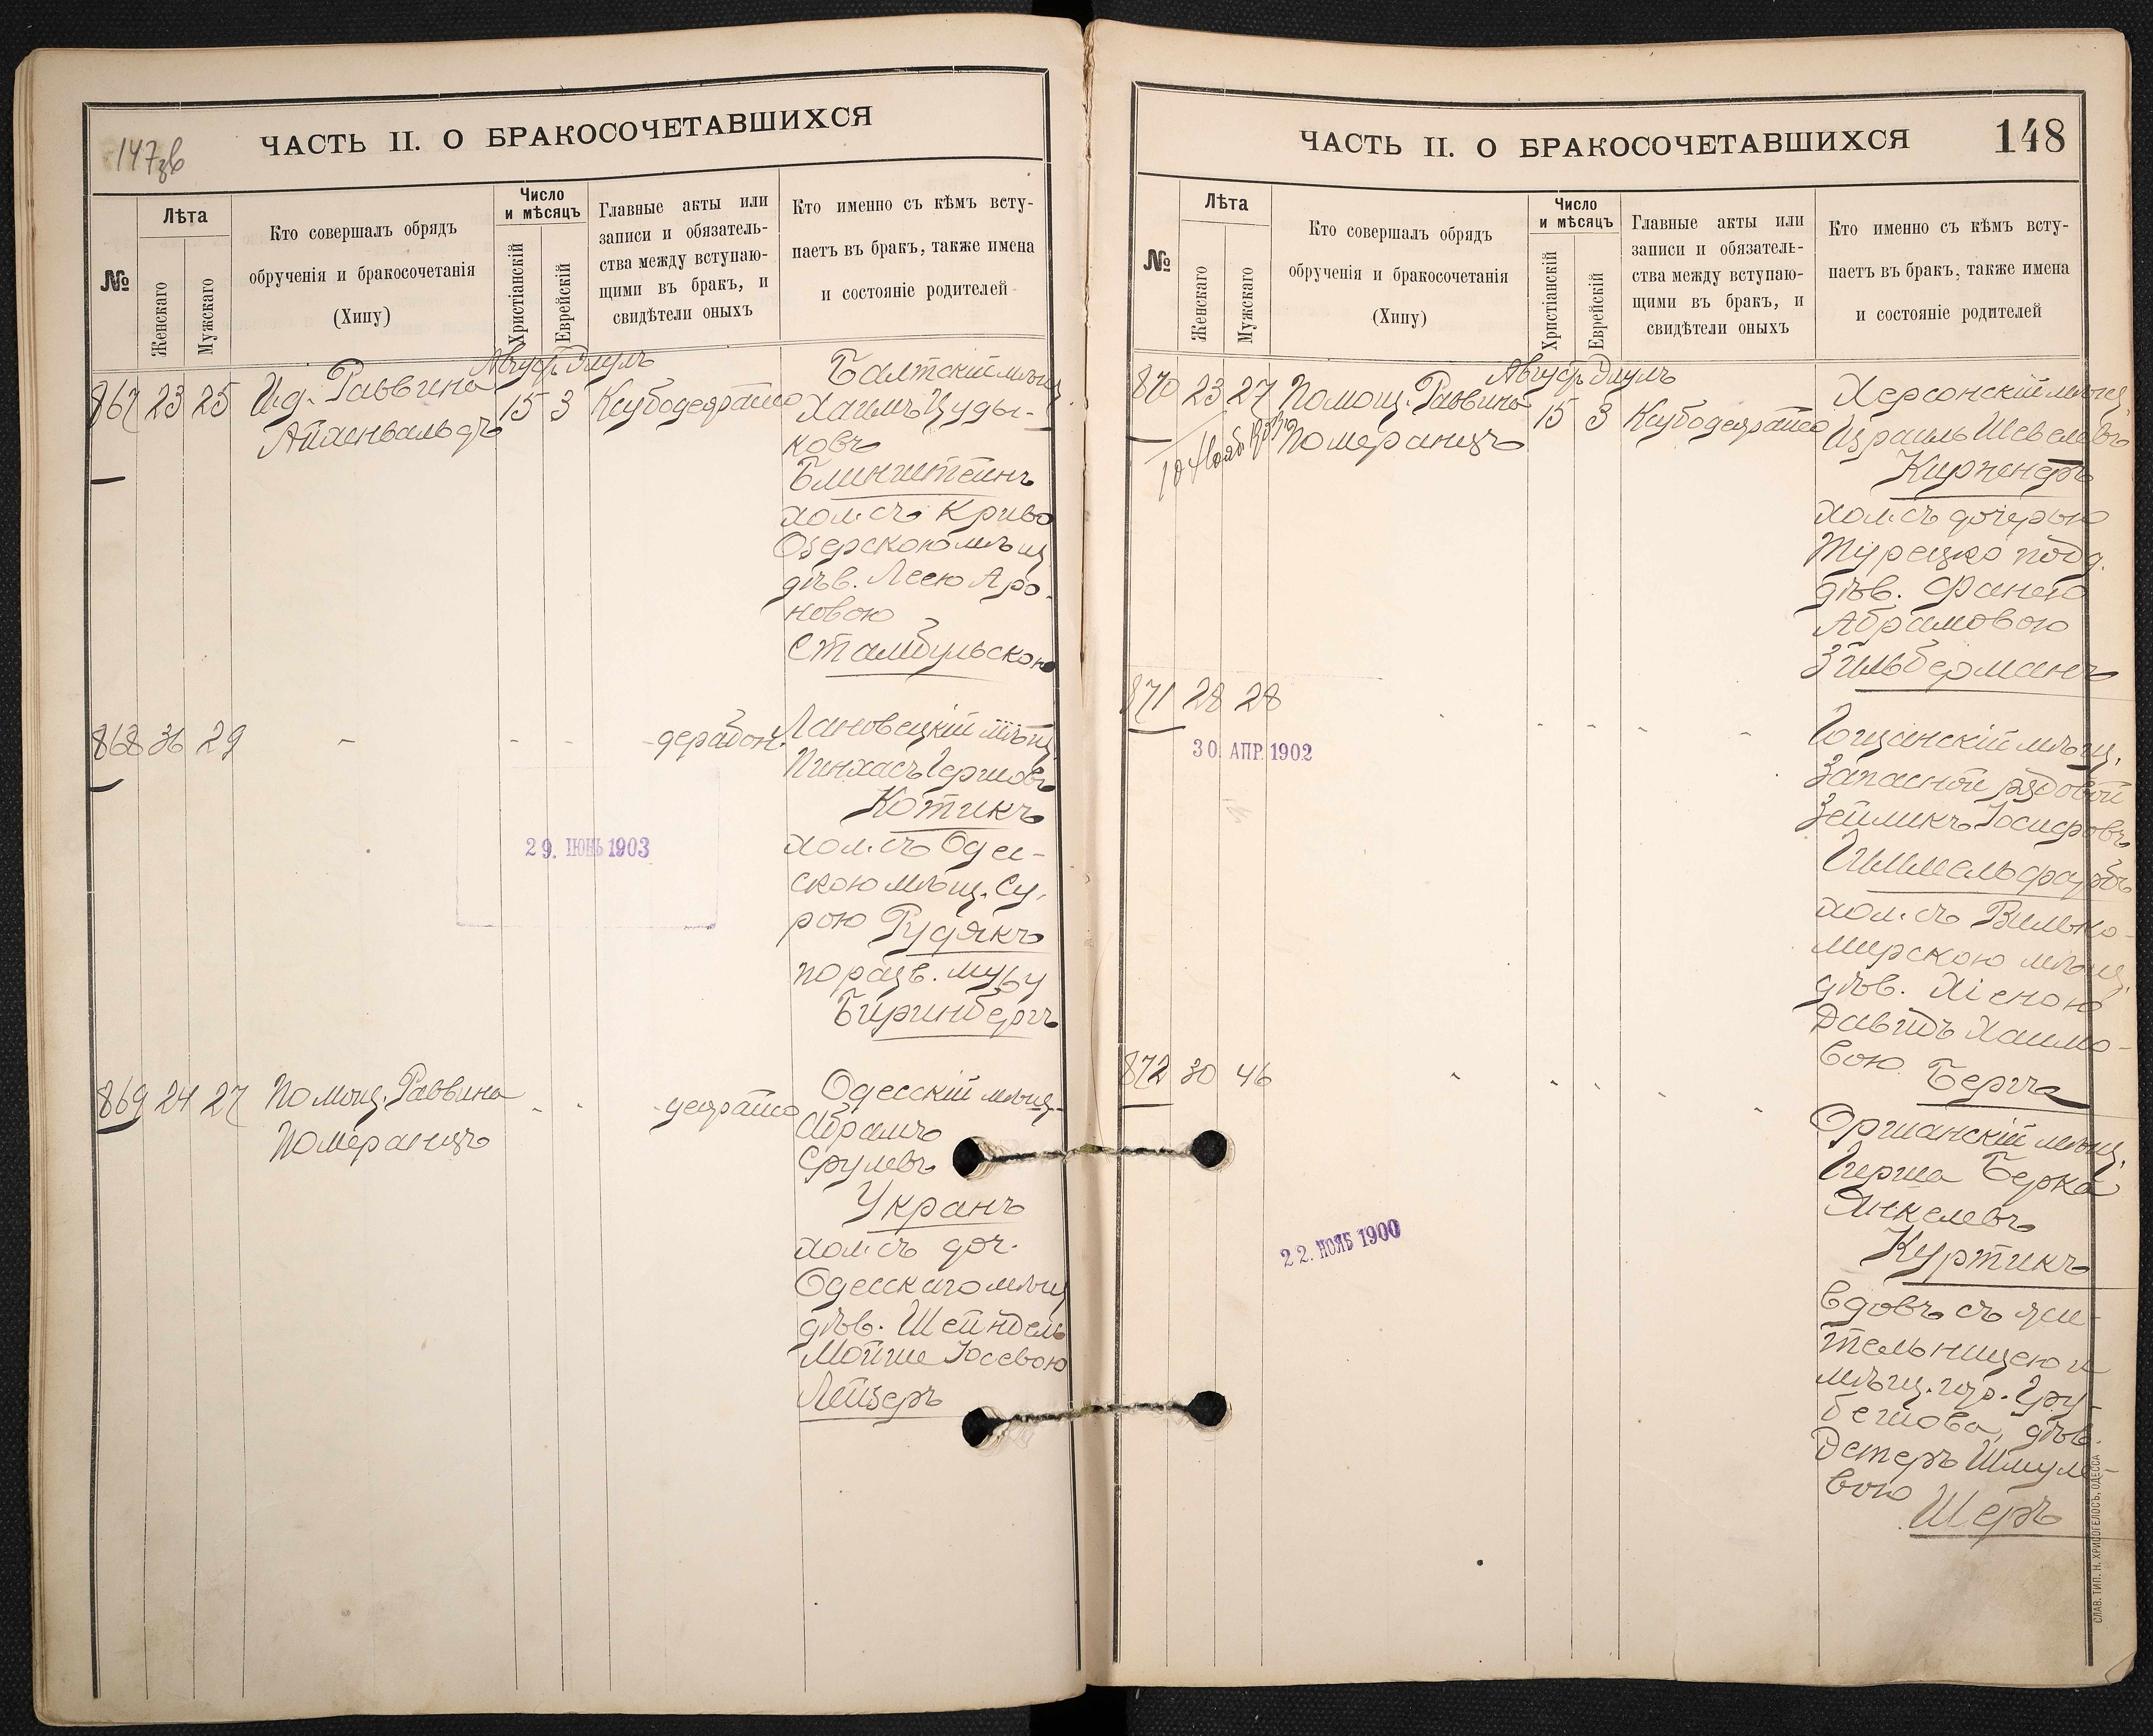 147зв
ЧАСТЬ II. О БРАКОСОЧЕТАВШИХСЯ
№
Лѣта
Женскаго
Мужскаго
Кто совершалъ обрядъ
обрученія и бракосочетанія
(Хипу)
Число
и мѣсяцъ
Христіанскій
Еврейскій
Главные акты или
записи и обязатель-
ства между вступаю-
щими въ бракъ, и
свидѣтели оныхъ
Кто именно съ кѣмъ всту-
паетъ въ бракъ, также имена
и состояніе родителей
867 23 25 И.д. Раввина
Айхенвальдъ
Август. Элулъ
15 3
Балтскій мѣщ.
Хаимъ
ковъ
Блинштейнъ
хол. съ Криво
Озерскою мѣщ
дѣв. Леею Аро-
новою
Стамбульскою
868 36 29 - - -
Лановецкій мѣщ.
Пинхасъ Гершовъ
Котикъ
хол. съ Одес-
скою мѣщ. Су-
рою Рудякъ
по разв. мужу
Биринбергъ
29. ІЮНЬ 1903
869 24 27 Помощ. Раввина
Померанцъ
- -
Одесскій мѣщ.
Абрамъ
Срулевъ
Укранъ
хол. съ доч.
Одесскаго мѣщ
дѣв. Шейндель
Мойше Іосевою
Лейзеръ
ЧАСТЬ II. О БРАКОСОЧЕТАВШИХСЯ
148
№
Лѣта
Женскаго
Мужскаго
Кто совершалъ обрядъ
обрученія и бракосочетанія
(Хипу)
Число
и мѣсяцъ
Христіанскій
Еврейскій
Главные акты или
записи и обязатель-
ства между вступаю-
щими въ бракъ, и
свидѣтели оныхъ
Кто именно съ кѣмъ всту-
паетъ въ бракъ, также имена
и состояніе родителей
870 23 27 Помощ. Раввина
Померанцъ
Август. Элулъ
15 3
Херсонскій мѣщ.
Израиль Шевелевъ
Киржнеръ
хол. съ дочерью
Турецко подд.
дѣв. Фанею
Абрамовою
Зильберманъ
871 28 28
30. АПР. 1902
Гощанскій мѣщ.
Запасной рядовой
Зейликъ Іосифовъ
Гиммельфарбъ
хол. съ Вилько-
мирскою мѣщ.
дѣв. Хіеною
Давидъ Хаимо-
вою Бергъ
872 30 46
22. НОЯБ 1900
Оршанскій мѣщ.
Герша Берка
Янкелевъ
Куртикъ
вдовъ съ жи-
тельницею и
мѣщ. гор. Гру-
бешова, дѣв.
Эстеръ Шмуле-
вою
Шеръ
СЛАВ. ТИП. Н. ХРИСОГЕЛОСЪ, ОДЕССА